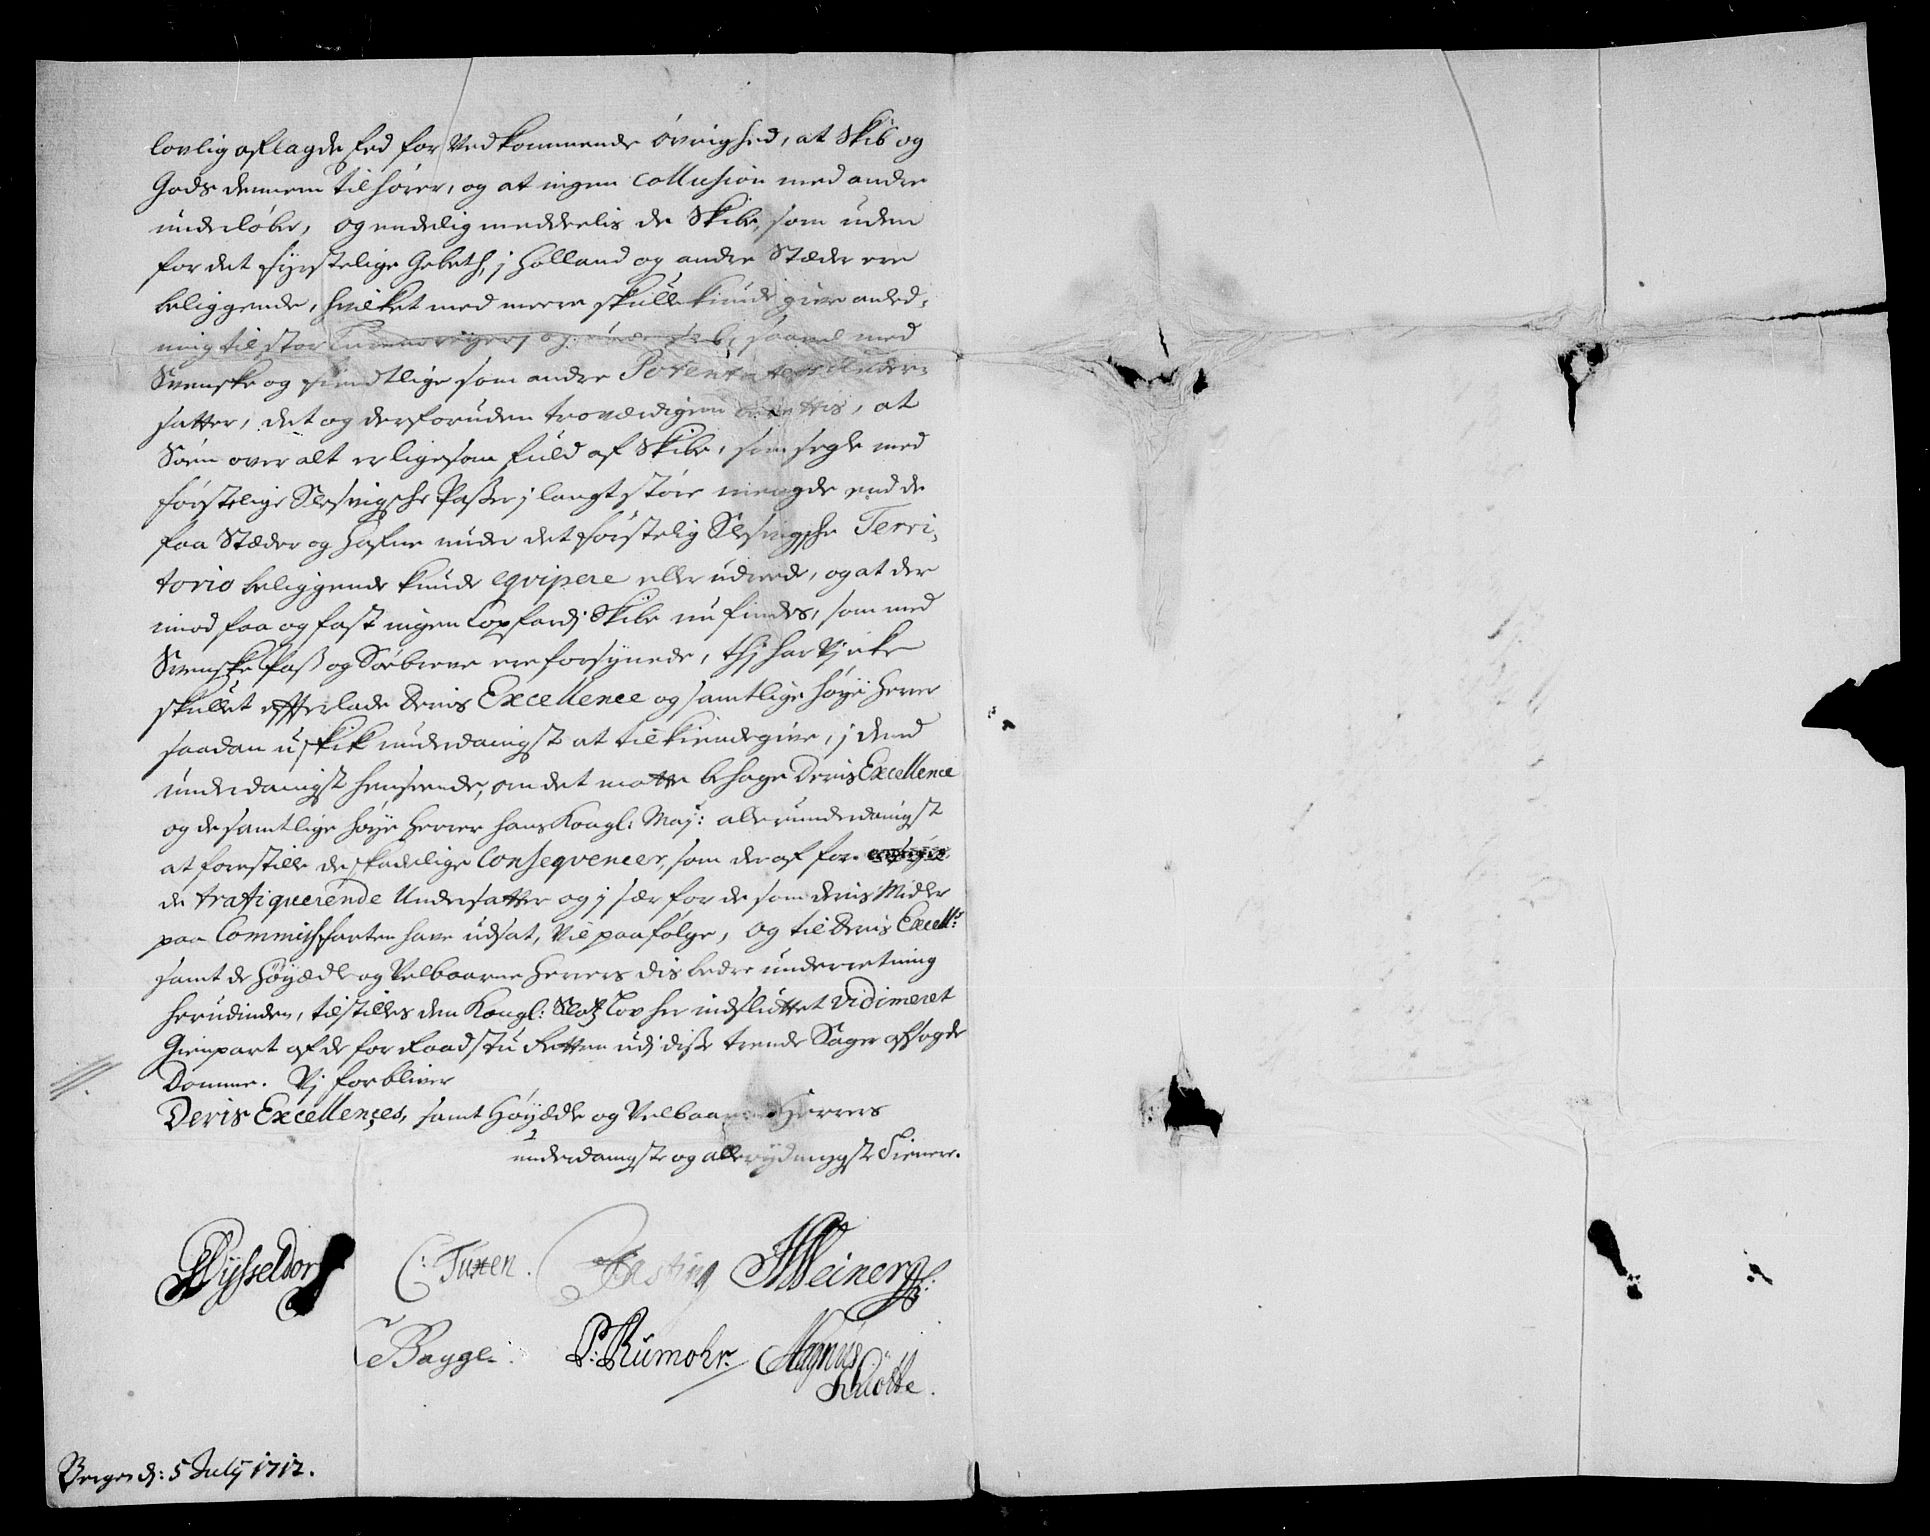 lovlig aflagde Eed for Vedkommende øvrighed, at Skib og
Gods dennem tilhører, og at ingen Collusion med andre
underløber, og endelig meddeelis de Skibe, som uden
for det fyrstelige Gebeth, j Holland og andre Stæder ere
beliggende, hvilket med meere skulle kunde give anled-
ning til stor og saavel med
Svenske og fiendtlige som andre Potentaters Under-
satter, det og derforuden troværdigen berettis, at
Søen over alt er ligesom fuld af Skibe, som segle med
førstelige Slesvigsche Passer j langt støre mengde end de
faa Stæder og Hafne under det førstelig Slesvigsche Terri-
torio beliggende kunde eqvipere eller udreede, og at der
imod faa og fast ingen Copfardj Skibe nu findes, som med
Svenske Pass og Søebreve ere forsynede, thj har Vj icke
skullet efterlade Deris Excellence og samtlige høye Herrer
saadan uskik underdanigst at tilkiendegive, j dend
underdanigst henseende, om det motte behage Deris Excellence
og de samtlige høye Herrer Hans Kongl: May: allerunderdanigst
at forestille de skadelige Conseqvencer, som deraf for
de trafiquerende Undersatter og j sær for de som deris Midler
paa Commissfarten have udsat, vil paafølge, og til Deris Excell:s
samt de Høyædle og Velbaarne Herrers dis bedre underretning
herudinden, tilstilles den Kongl: Slotz Lov her indsluttet vidimeret
Gienpart af de for Raadstu Retten udj disse trende Sager afsagde
Domme. Vj forbliver
Deris Excellences, samt Høyædle og Velbaarne Herrers
underdanigste og allerydmygste Tienere.
Wysseldorf C: Tuxen. Fasting Weinerg
Bagge. P: Rumohr. Magnus
Schiøtte.
Bergen d: 5 July 1712.